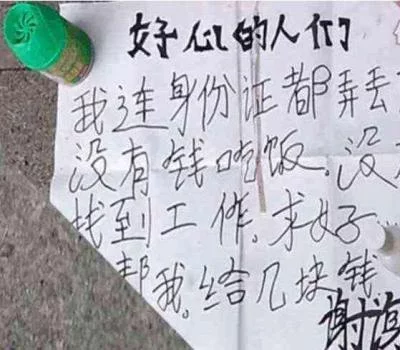 好心的人们
我连身份证都弄丢
没有钱吃饭.没
找到工作.求好
帮我.给几块钱
谢